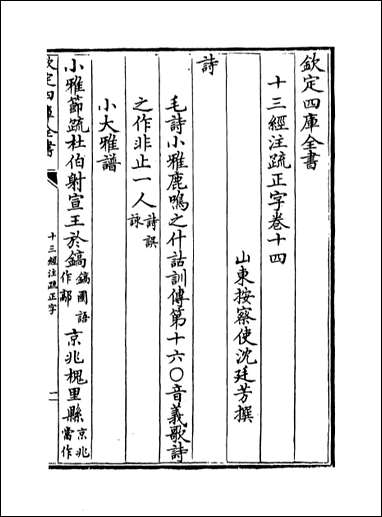 欽定四庫全書
十三經注疏正字卷十四
山東按察使沈廷芳撰
詩
毛詩小雅鹿鳴之什詁訓傳第十六○音義歌詩
之作非止一人詩誤詠
小大雅譜
小雅節疏杜伯射宣王於鎬鎬國語作鄗京兆槐里縣京兆當作
欽定四庫全書
十三經注疏正字
一